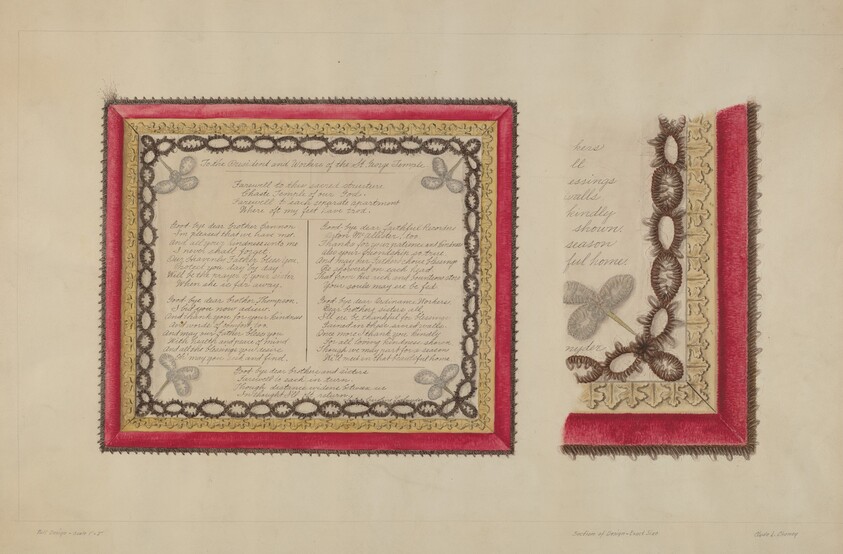 To the President and Workers of the St. George Temple
Farewell to this sacred structure
Chaste Temple of our God.
Farewell to each separate apartment
Where oft my feet have trod.
Good bye dear brother Cannon
I'm pleased that we have met
And all your kindness unto me
I never shall forget.
May Heavenly Father bless you
Protect you day by day
Will be the prayer of your sister
When she is far away.
Good bye dear brother Thompson
I bid you now adieu.
And thank you for your kindness
And words of comfort, too
And may our Father bless you
With health and peace of mind
And all the blessings you desire
O! may you seek and find.
Good bye dear faithful Recorder
McAllister, too
Thanks for your patience and kindness
And your friendship so true
And may our Father's choicest blessings
Be showered on each head
That from His rich and bounteous store
Your souls may ere be fed
Good bye dear Ordinance Workers
Dear brothers sisters all,
I'll ere be thankful for blessings
Gained in these walls
Once more I thank you kindly
For all loving kindness shown
Though we may part for a season
We'll meet in that heavenly home
Good bye dear brothers and sisters
Farewell is said in turn
Though distance widens between us
In thought I'll oft return
hers
ll
essings
walls
kindly
shown
season
ful home.
nyder
Section of Design - Exact Size